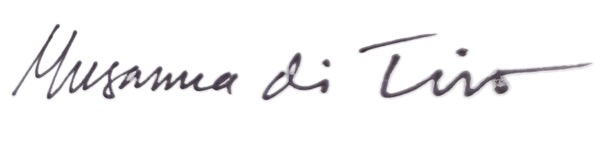 Musanna di Tiro